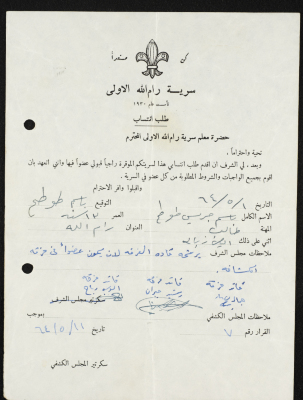 كن مستعداً
سرية رام الله الاولى
تأسست عام ١٩٢٠
طلب انتساب
حضرة معلم سرية رام الله الاولى المحترم
تحية واحتراماً ،
وبعد ، لي الشرف ان اقدم طلب انتسابي هذا لسريتكم الموقرة راجياً قبولي عضواً فيها واني اتعهد بان
اقوم بجميع الواجبات والشروط المطلوبة من كل عضو في السرية .
واقبلوا وافر الاحترام
التاريخ ٦٤/٥/٨ التوقيع باسم
الاسم الكامل باسم العمر ١٧ سنة
المهنة طالب العنوان رام الله
اثني على ذلك
ملاحظات مجلس الشرف يرضى قادة الفرقة لان يكون عضواً في فرقة
قائد فرقة قائد فرقة قائد فرقة
سكرتير مجلس الشرف
ملاحظات المجلس الكشفي بموجب
القرار رقم ٧ تاريخ ٦٤/٥/١١
سكرتير المجلس الكشفي